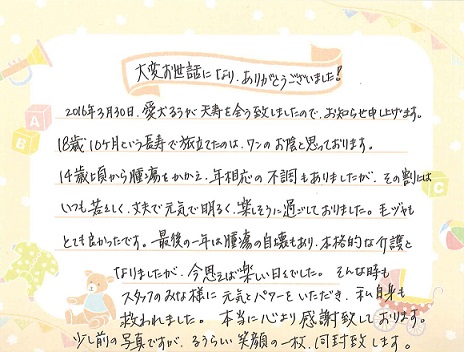 大変お世話になり、ありがとうございました!
2016年3月30日、愛犬るうが天寿を全う致しましたので、お知らせ申し上げます。
18歳10ケ月という長寿で旅立てたのは、ワンのお陰と思っております。
14歳頃から腫瘍をかかえ、年相応の不調もありましたが、その割には
いつも若々しく、丈夫で元気で明るく、楽しそうに過ごしておりました。毛ヅヤも
とても良かったです。最後の一年は腫瘍の自壊もあり、本格的な介護と
なりましたが、今思えば楽しい日々でした。そんな時も
スタッフのみな様に元気とパワーをいただき、私自身も
救われました。本当に心より感謝致しております。
少し前の写真ですが、るうらしい笑顔の一枚、同封致します。
A
B
C